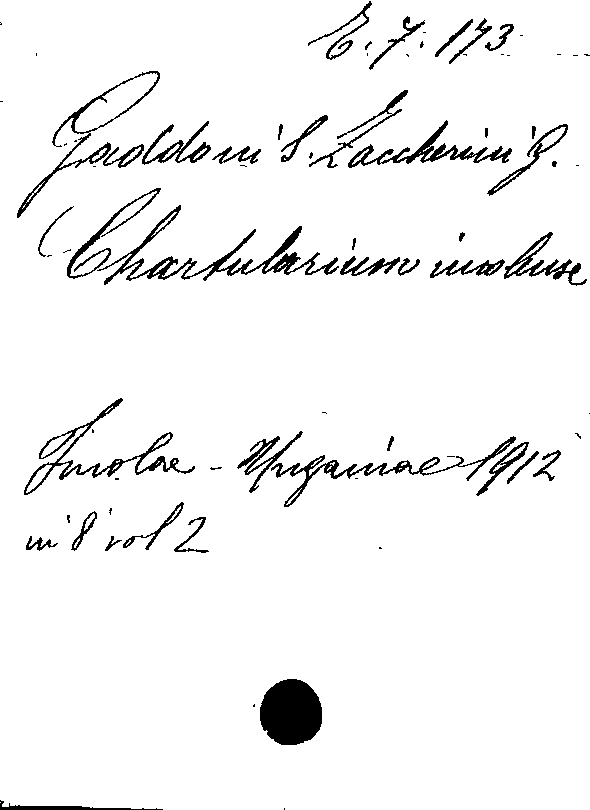 E. 7. 173
Gaddoni S. Zaccherini G.
Chartularium imolense
Imolae - Unganiae 1912
in 8 vol 2